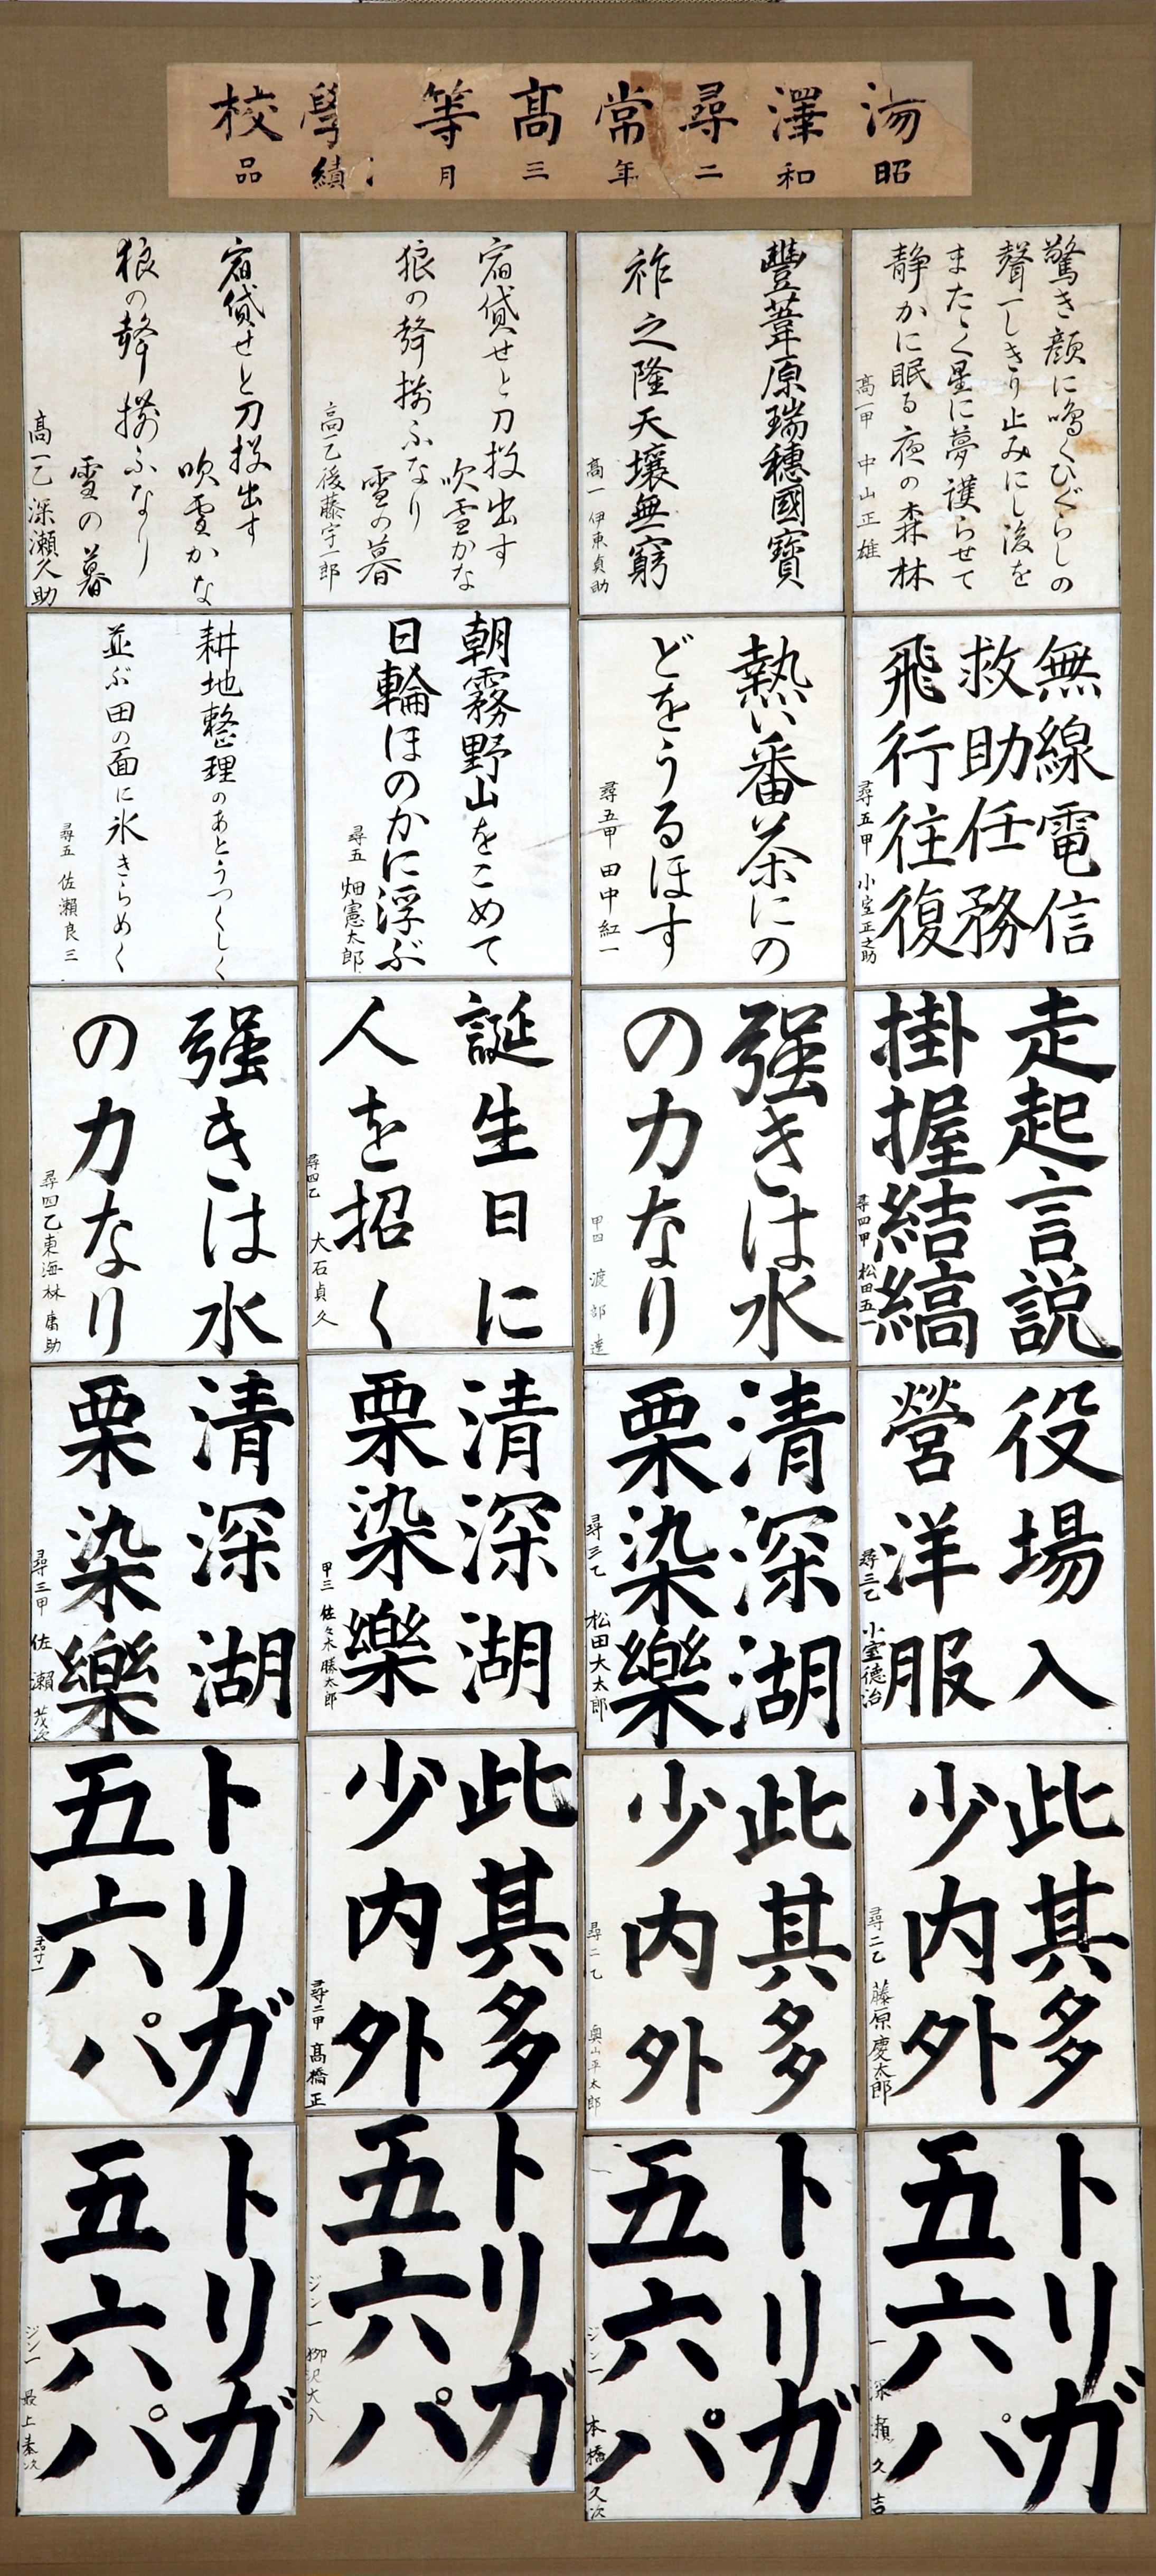 湯澤尋常高等學校
昭和二年三月 成績品
驚き顔に鳴くひぐらしの
聲一しきり止みにし後を
またゝく星に夢護らせて
静かに眠る夜の森林
高一甲 中山正雄
豐葦原瑞穗國寶
祚之隆天壤無窮
高一 伊東貞助
宿貸せと刀投出す
吹雪かな
狼の聲揃ふなり
雪の暮
高一乙 後藤宇一郎
宿貸せと刀投出す
吹雪かな
狼の聲揃ふなり
雪の暮
高一乙 深瀬久助
無線電信
救助任務
飛行往復
尋五甲 小室正之助
熱い番茶にの
どをうるほす
尋五甲 田中紅一
朝霧野山をこめて
日輪ほのかに浮ぶ
尋五 畑憲太郎
耕地整理のあとうつくしく
並ぶ田の面に氷きらめく
尋五 佐瀬良三
走起言説
掛握結縞
尋四甲 松田五一
强きは水
の力なり
甲四 渡部達
誕生日に
人を招く
尋四乙 大石貞久
强きは水
の力なり
尋四乙 東海林庸助
役場入
營洋服
尋三乙 小室德治
清深湖
栗染樂
尋三乙 松田大太郎
清深湖
栗染樂
甲三 佐々木勝太郎
清深湖
栗染樂
尋三甲 佐瀬茂次
此其多
少内外
尋二乙 藤原慶太郎
此其多
少内外
尋二乙 奥山平太郎
此其多
少内外
尋二甲 髙橋正
トリガ
五六パ
尋一
トリガ
五六パ
一 深瀬久吉
トリガ
五六パ
ジン一 本橋久次
トリガ
五六パ
ジン一 柳沢大八
トリガ
五六パ
ジン一 最上泰次